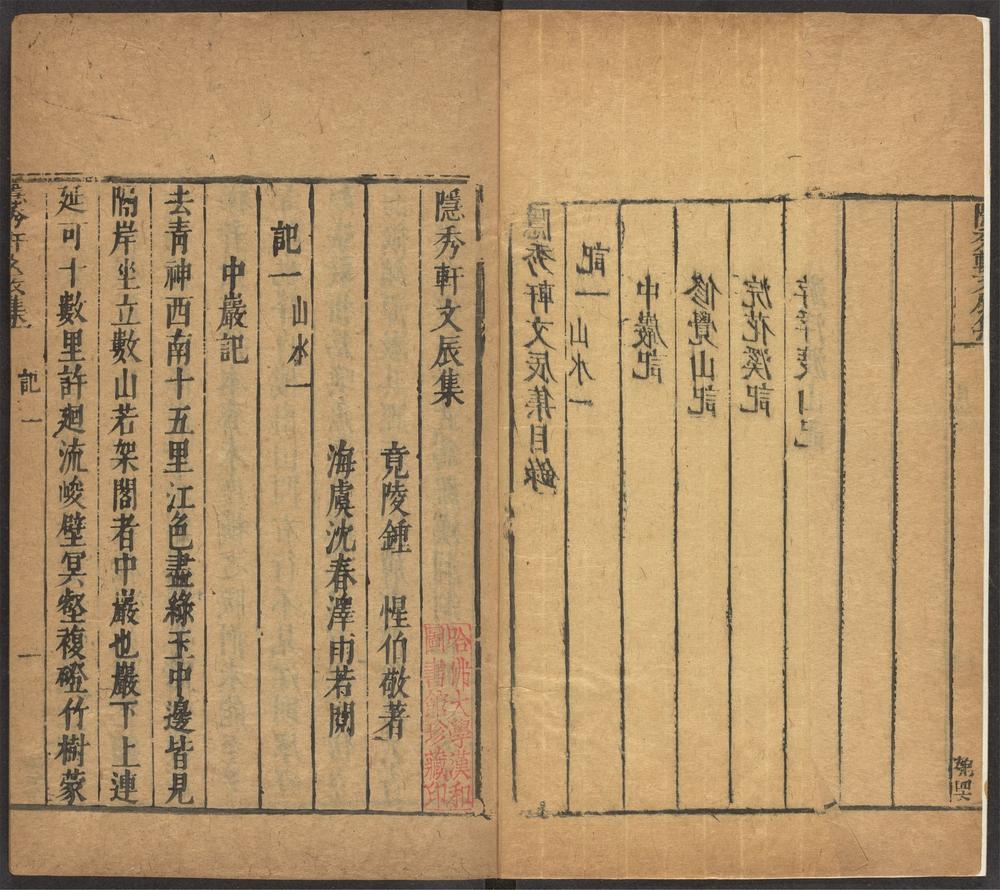 隱秀軒文辰集目錄
記一 山水一
中巖記
修覺山記
浣花溪記
遊浮渡山記
隱秀軒文辰集
竟陵鍾 惺伯敬著
海虞沈春澤雨若閱
記一 山水一
中巖記
去青神西南十五里江色盡綠玉中邊皆見
隔岸坐立數山若架閣者中巖也巖下上連
延可十數里許廻流峻壁冥壑複磴竹樹蒙
記一 一
哈佛大學漢和
圖書館珍藏印